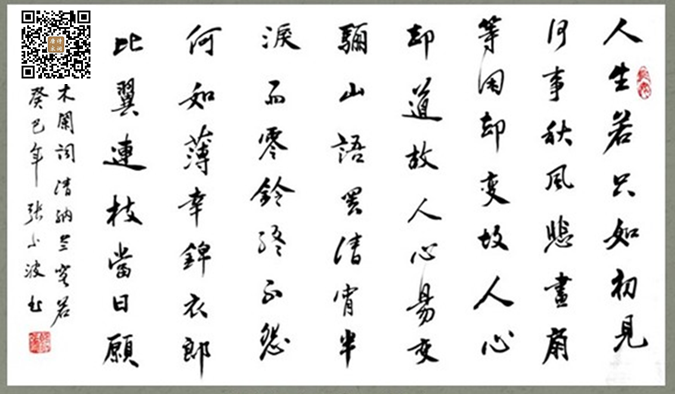 人生若只如初見
何事秋風悲畫扇
等闲却变故人心
却道故人心易变
驪山語罢清宵半
淚雨零鈴終不怨
何如薄幸錦衣郎
比翼連枝當日願
木闌词清納兰容若
癸巳年張小波书